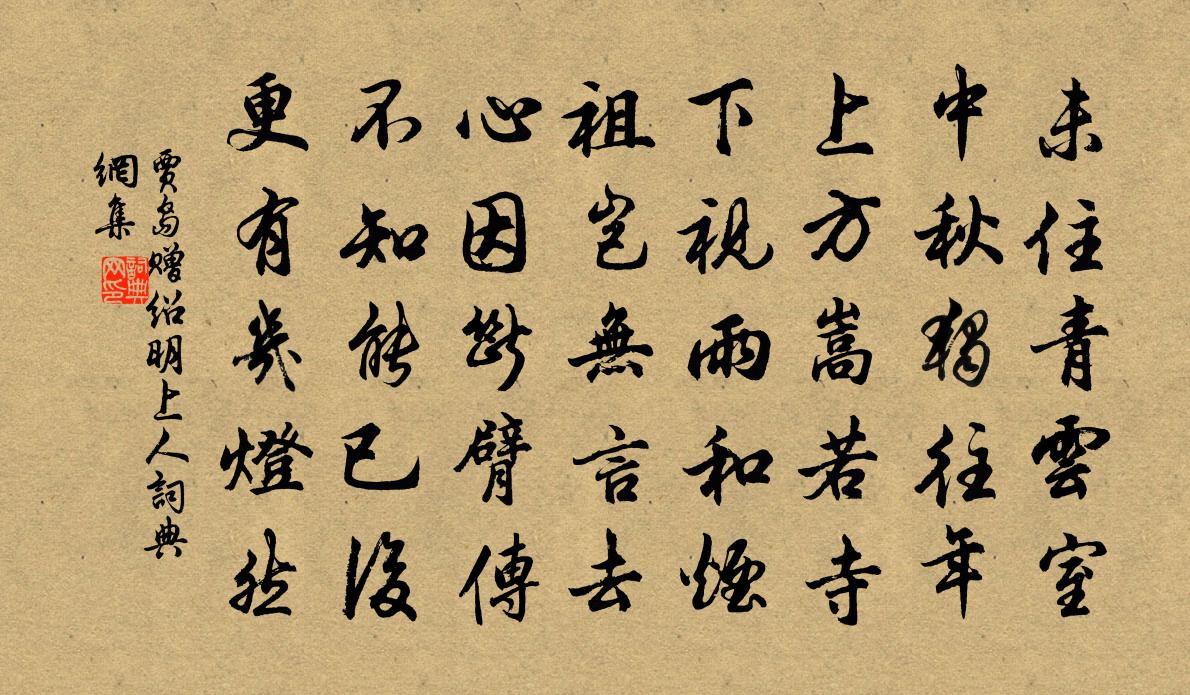 未住青雲室
中秋獨往年
上方嵩若寺
下視雨和煙
祖豈無言去
心因斷臂傳
不知能已後
更有幾燈然
賈島贈紹明上人詞典
網集
詞典
网印